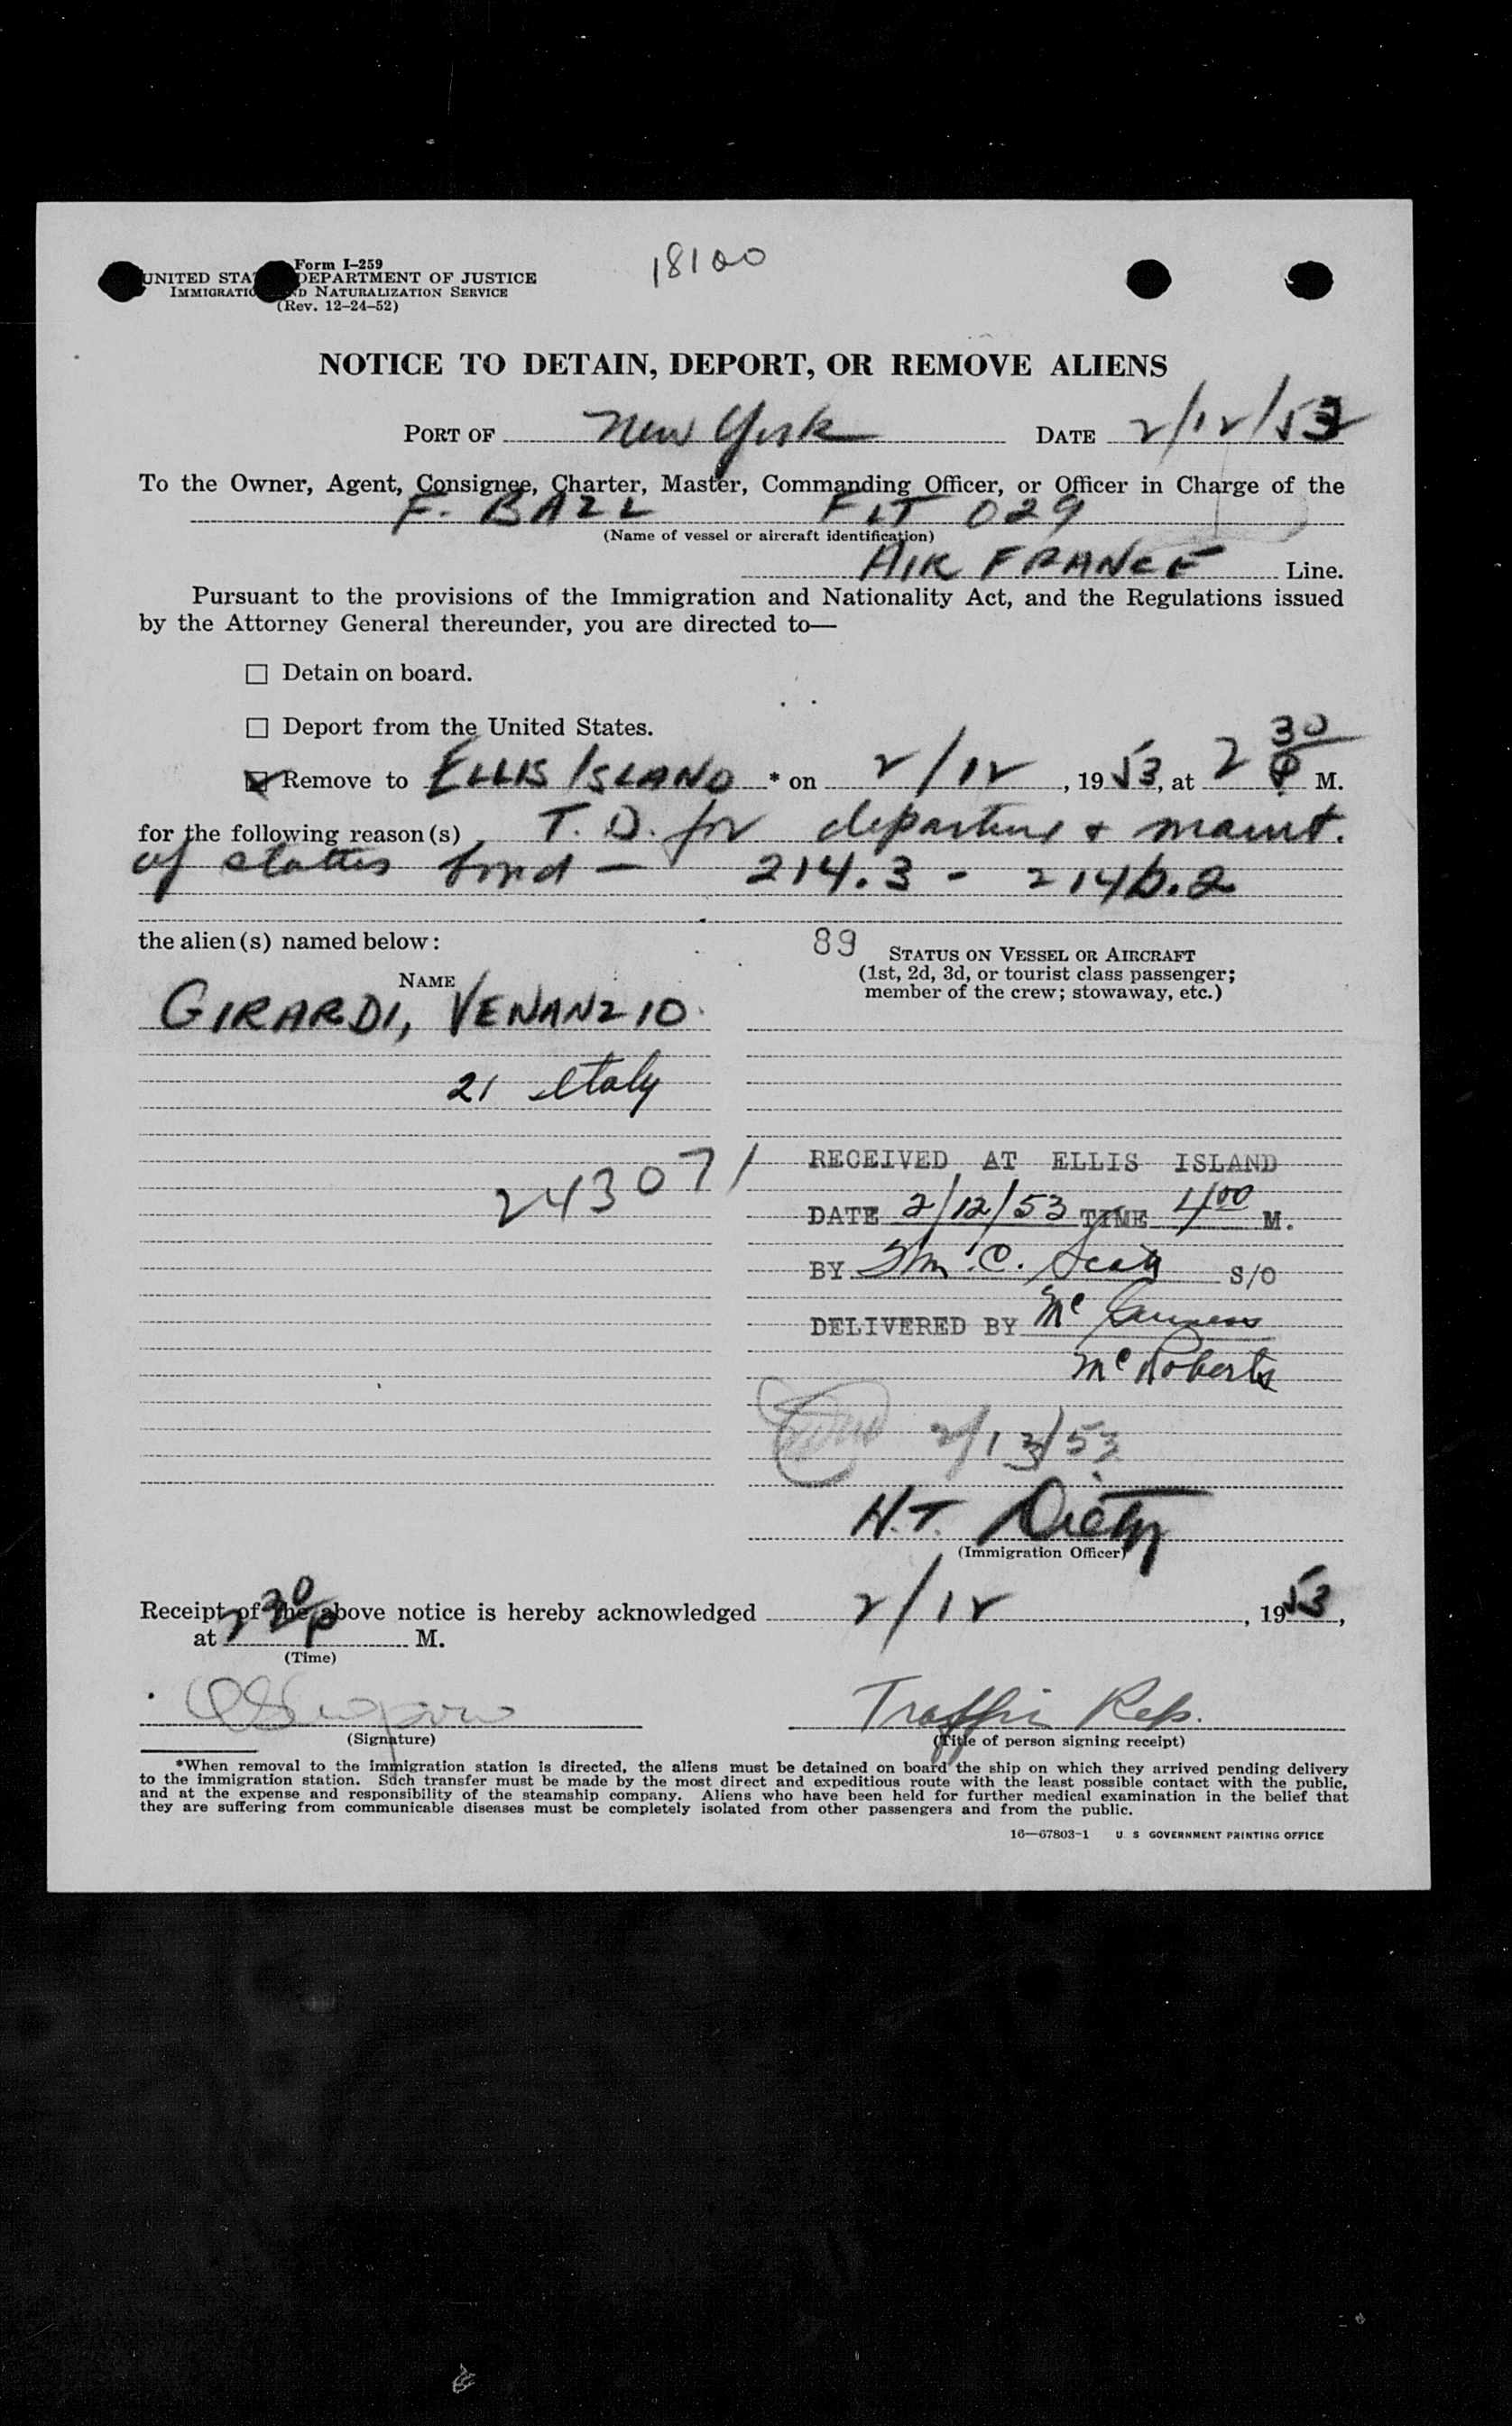 Form I-259
18100
UNITED STA DEPARTMENT OF JUSTICE
IMMIGRATIO ND NATURALIZATION SERVICE
(Rev. 12-24-52)
NOTICE TO DETAIN, DEPORT, OR REMOVE ALIENS
PORT OF New York DATE 2/12/53
To the Owner, Agent, Consignee, Charter, Master, Commanding Officer, or Officer in Charge of the
F. BAZL FLT 029
(Name of vessel or aircraft identification)
AIR FRANCE Line.
Pursuant to the provisions of the Immigration and Nationality Act, and the Regulations issued
by the Attorney General thereunder, you are directed to—
☐ Detain on board.
☐ Deport from the United States.
☒ Remove to ELLIS ISLAND * on 2/12, 1953, at 2 30 P M.
for the following reason(s) T. D. for departure + maint.
of status bond — 214.3 - 214b.2
the alien(s) named below:
89 STATUS ON VESSEL OR AIRCRAFT
(1st, 2d, 3d, or tourist class passenger;
member of the crew; stowaway, etc.)
NAME
GIRARDI, VENANZIO
21 Italy
243071
RECEIVED AT ELLIS ISLAND
DATE 2/12/53 TIME 4 00 M.
BY Wm. C. Scott S/O
DELIVERED BY Mc
McRoberts
2/13/53
H.T. Dietz
(Immigration Officer)
Receipt of the above notice is hereby acknowledged 2/12, 1953,
at 2 30 p M.
(Time)
Traffic Rep.
(Signature)
(Title of person signing receipt)
*When removal to the immigration station is directed, the aliens must be detained on board the ship on which they arrived pending delivery
to the immigration station. Such transfer must be made by the most direct and expeditious route with the least possible contact with the public,
and at the expense and responsibility of the steamship company. Aliens who have been held for further medical examination in the belief that
they are suffering from communicable diseases must be completely isolated from other passengers and from the public.
16—67803-1 U. S. GOVERNMENT PRINTING OFFICE